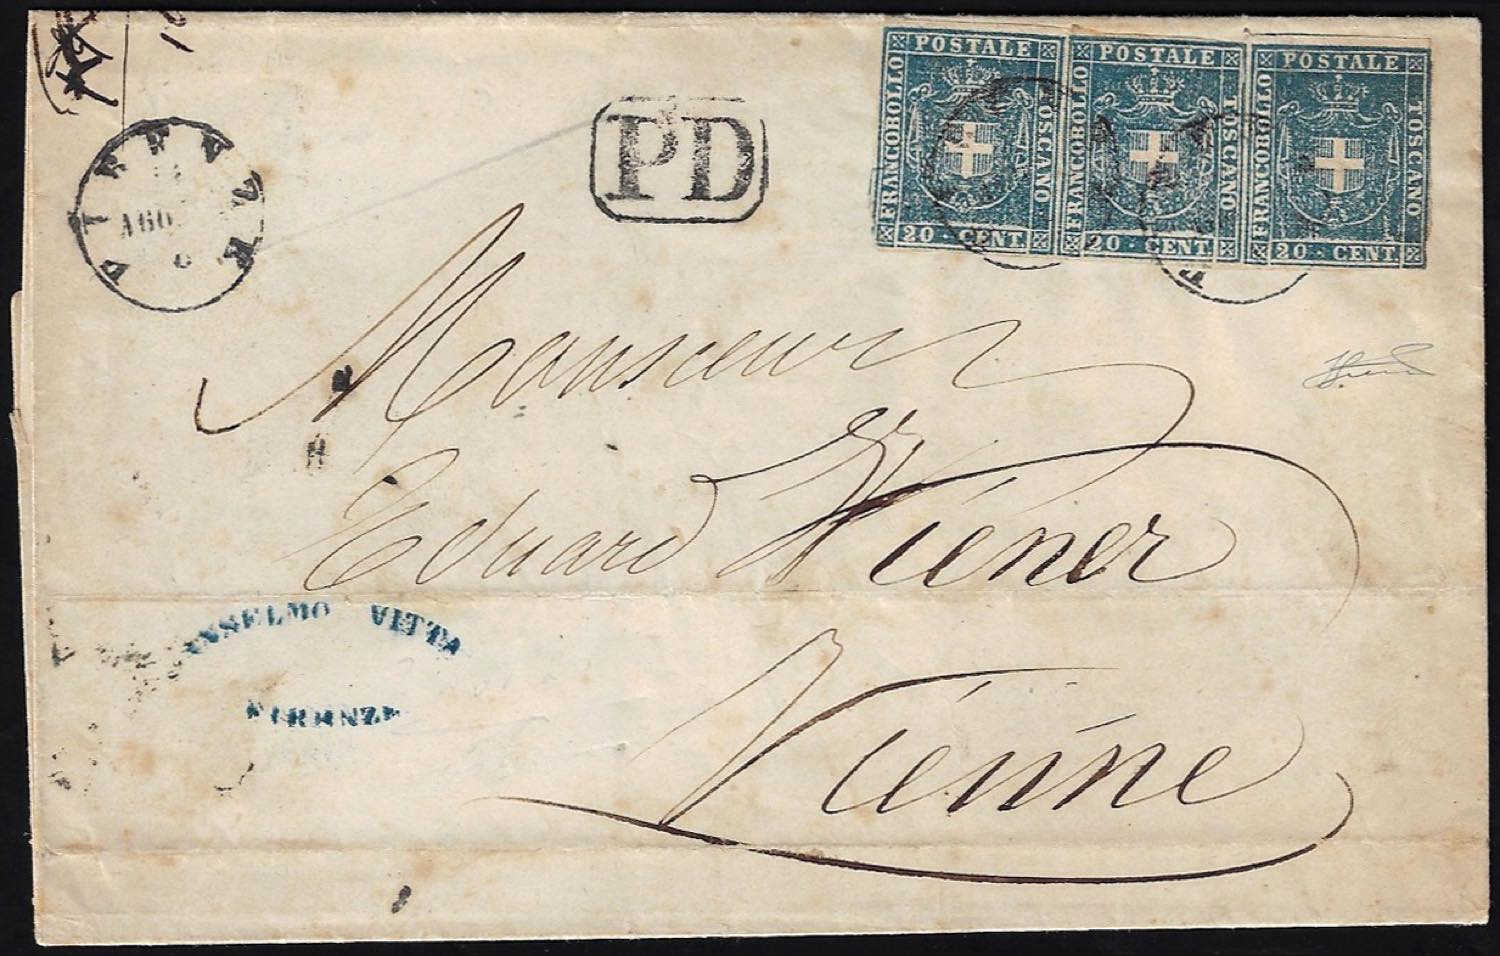 FIRENZE
AGO
PD
FRANCOBOLLO POSTALE TOSCANO
20 CENT.
FRANCOBOLLO POSTALE TOSCANO
20 CENT.
FRANCOBOLLO POSTALE TOSCANO
20 CENT.
Monsieur
Eduard Wiener
ANSELMO VITTA
FIRENZE
Vienne